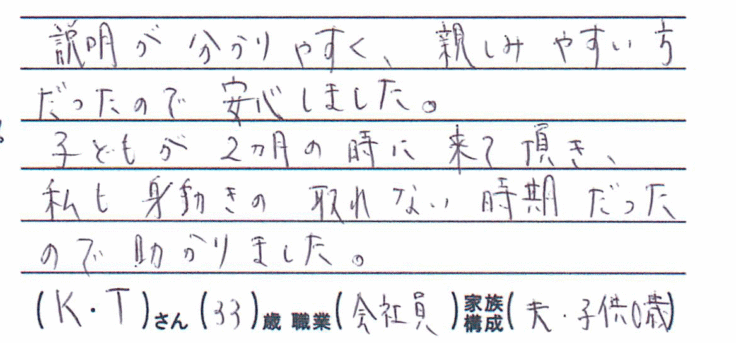 説明が分かりやすく、親しみやすい方
だったので安心しました。
子どもが2ヵ月の時に来て頂き、
私も身動きの取れない時期だった
ので助かりました。
(K・T)さん(33)歳 職業(会社員)家族構成(夫・子供0歳)